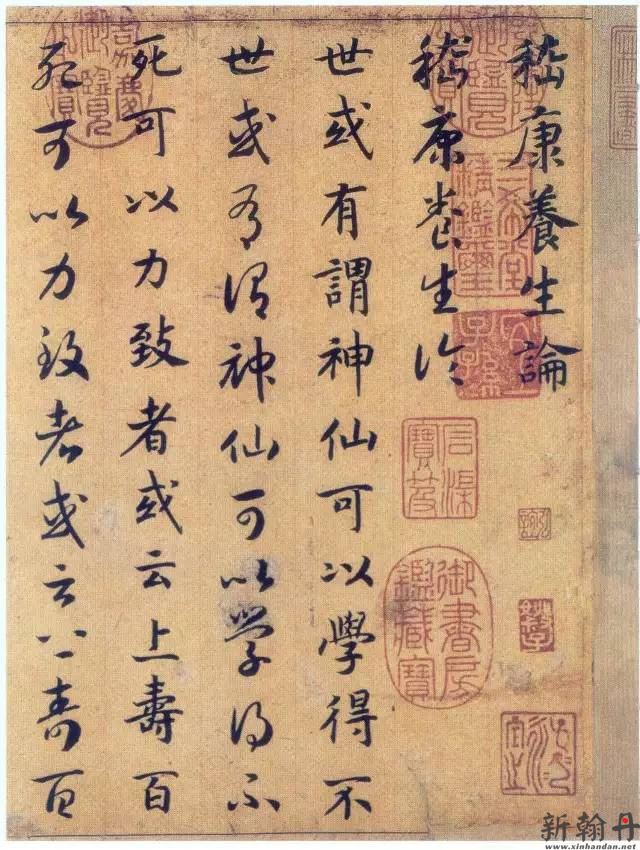 嵇康養生論
嵇康養生論
世或有謂神仙可以學得不
世或有謂神仙可以學得不
死可以力致者或云上壽百
死可以力致者或云上壽百
信深寶藏
御書房鑑藏寶
新翰丹
www.xinhandan.net